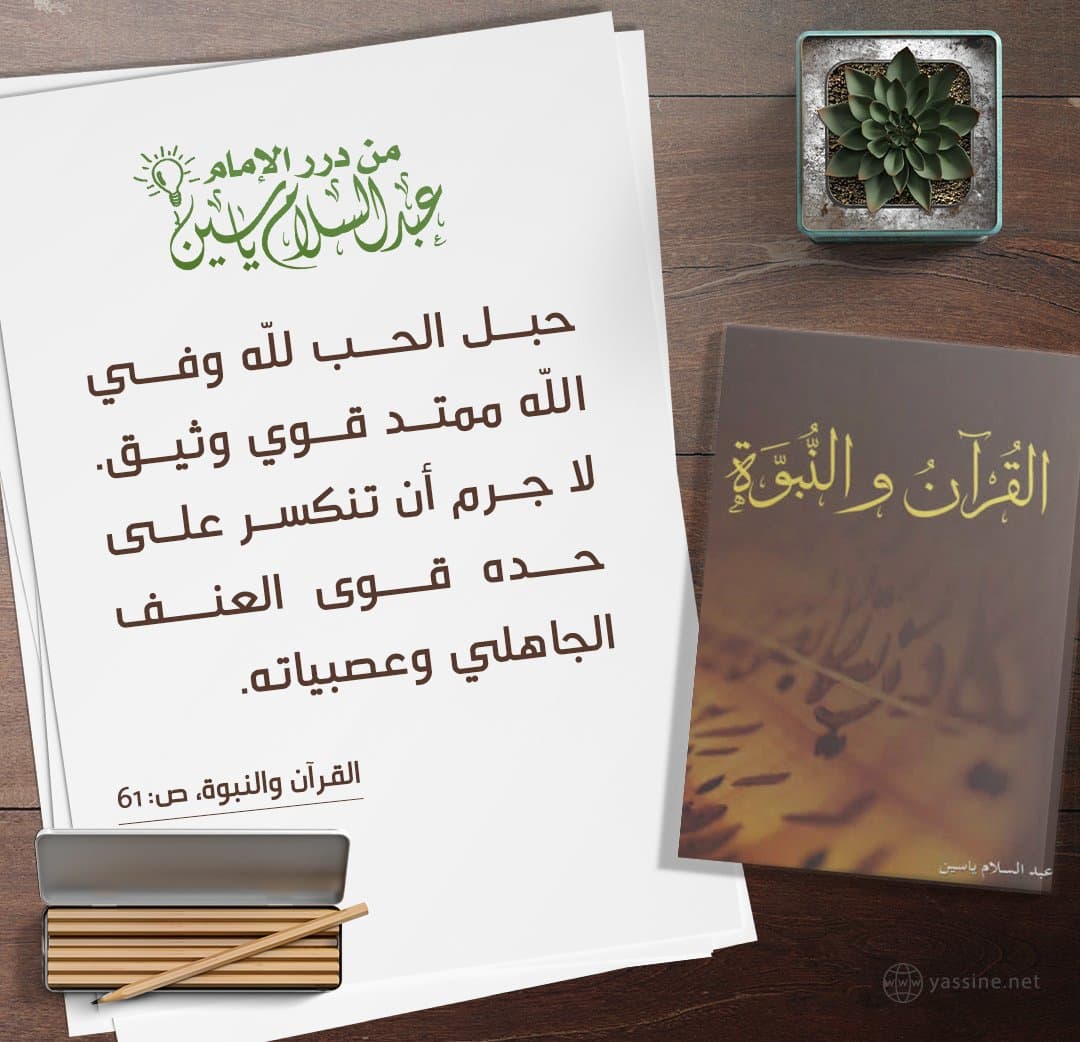 من درر الإمام
عبد السلام ياسين
حبل الحب لله وفي
الله ممتد قوي وثيق.
لا جرم أن تنكسر على
حده قوى العنف
الجاهلي وعصبياته.
القرآن والنبوة، ص: 61
القُرآنُ والنُّبوَّة
عبد السلام ياسين
www yassine.net